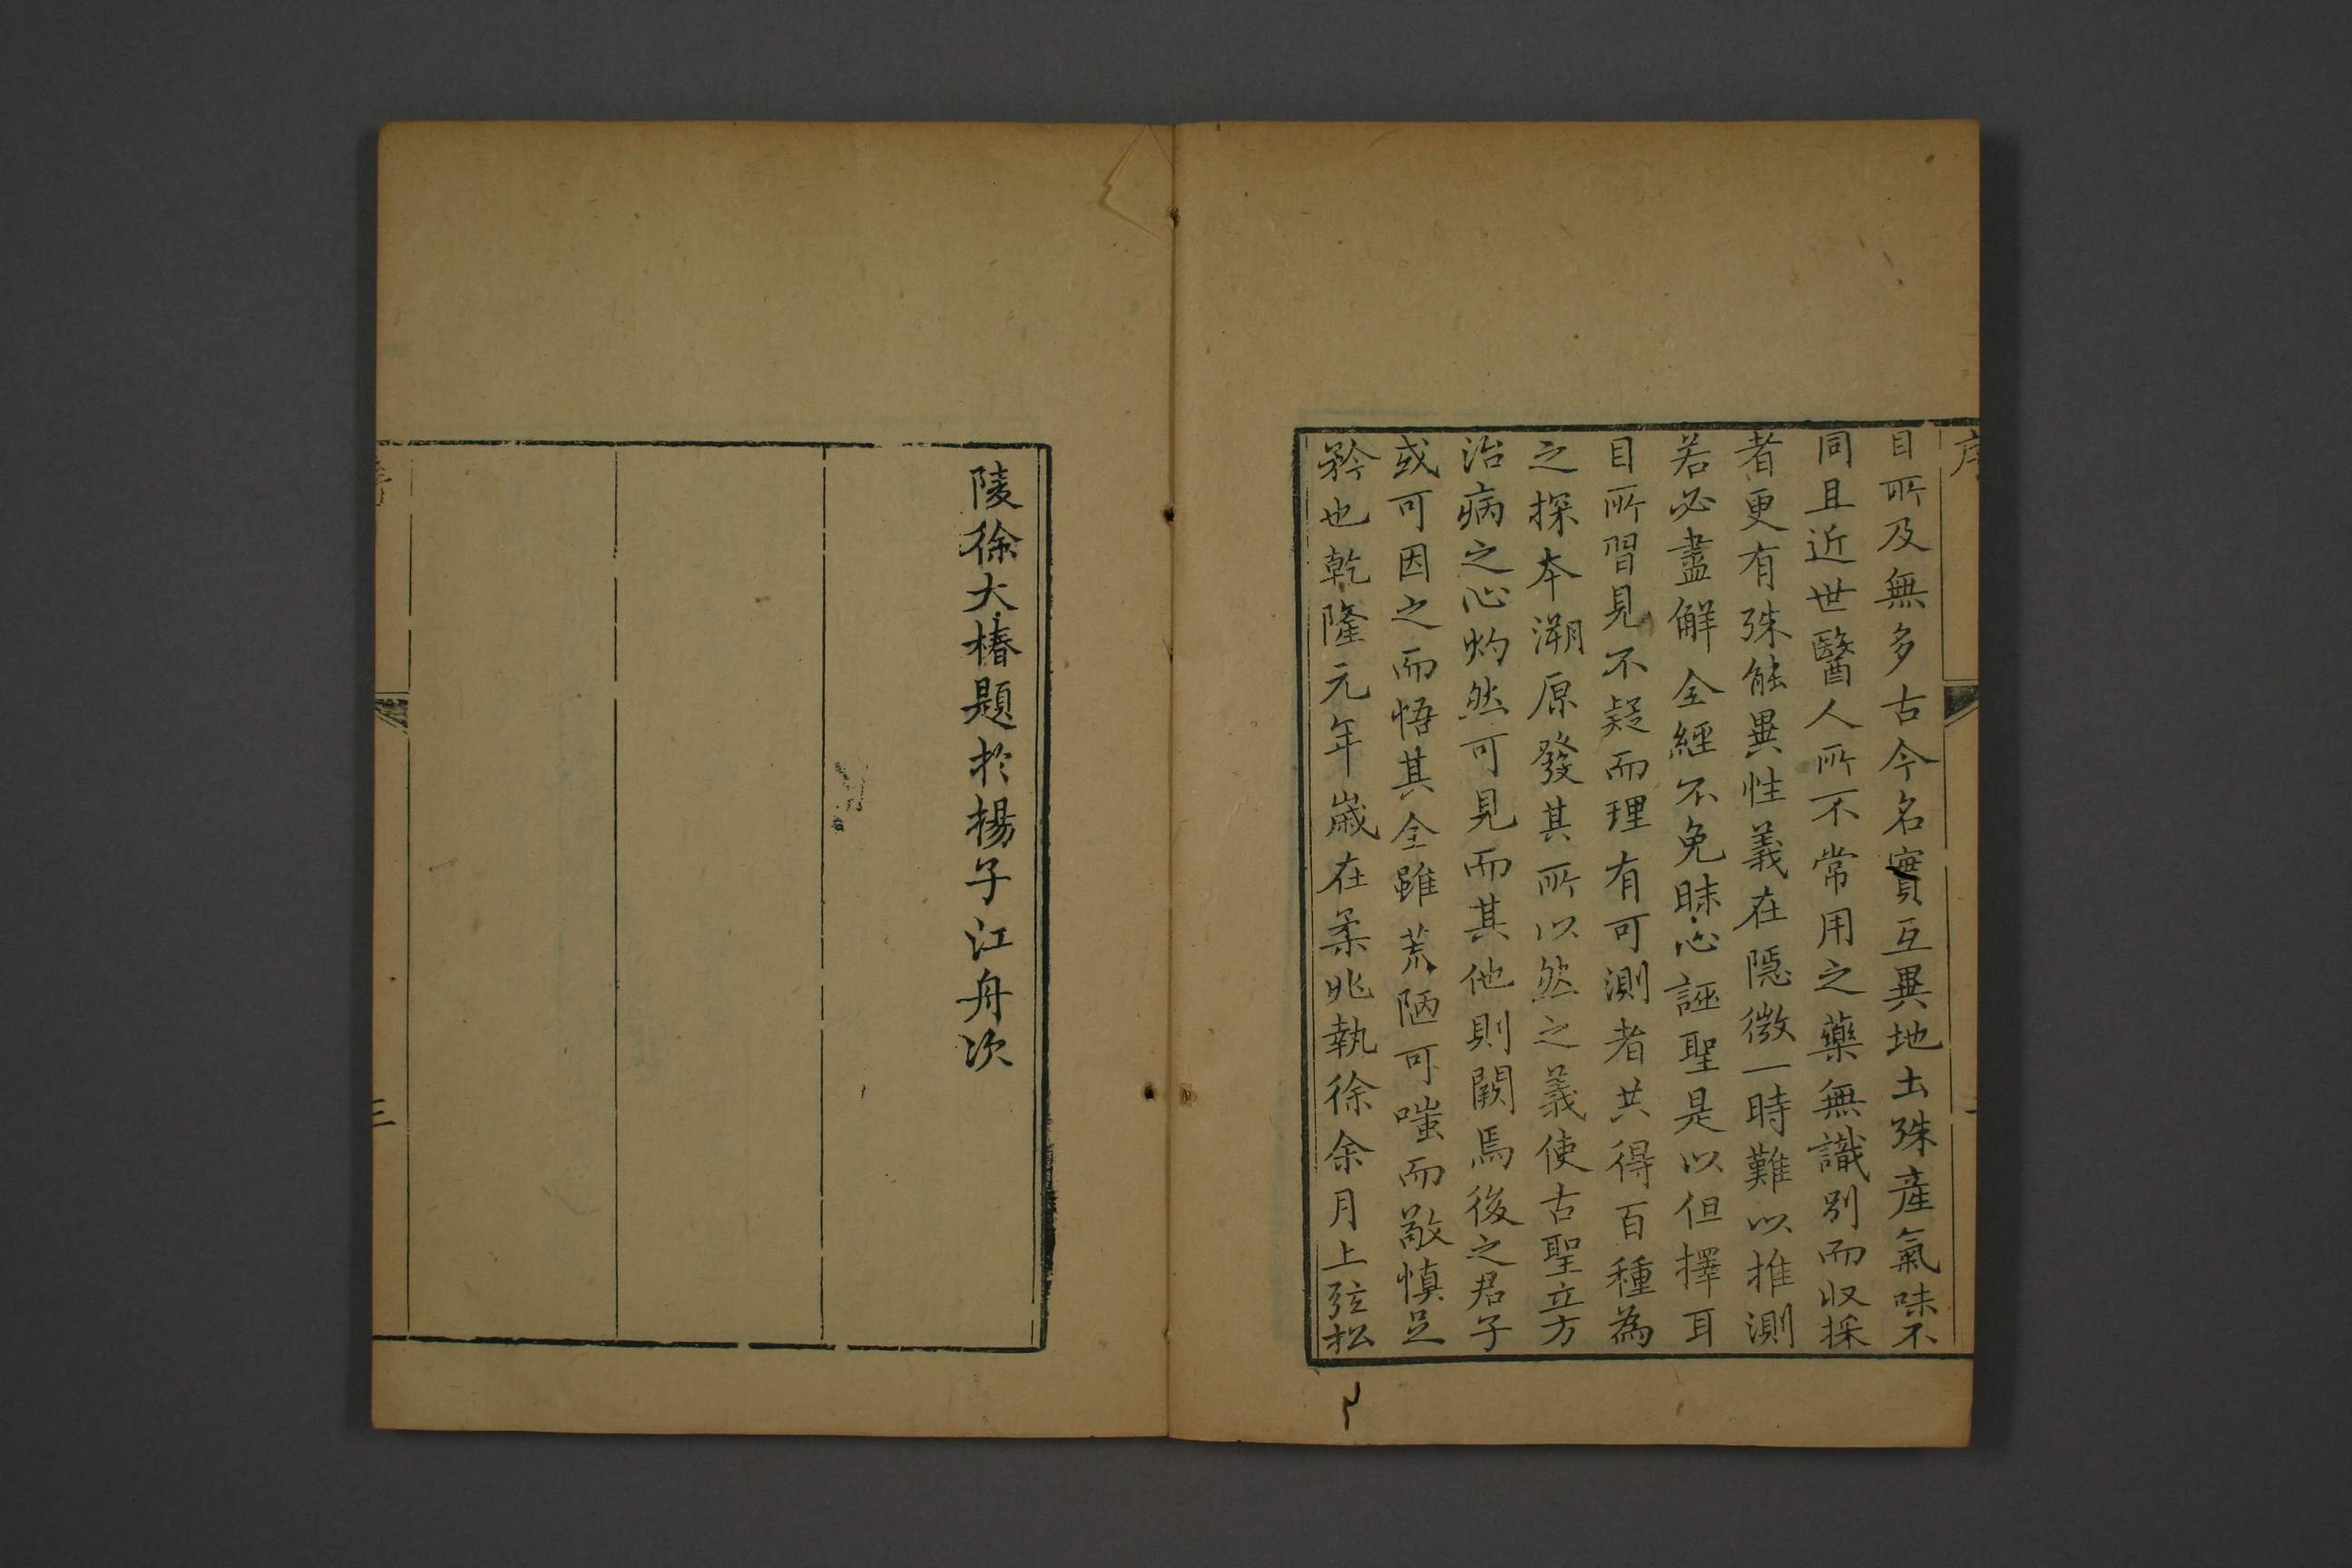 序
目所及無多古今名實互異地土殊產氣味不
同且近世醫人所不常用之藥無識別而収採
者更有殊能異性義在隱微一時難以推測
若必盡解全經不免昧心誣聖是以但擇耳
目所習見不疑而理有可測者共得百種為
之探本溯原發其所以然之義使古聖立方
治病之心灼然可見而其他則闕焉後之君子
或可因之而悟其全雖荒陋可嗤而敬慎足
矜也乾隆元年歲在柔兆執徐余月上弦松
陵徐大椿題於揚子江舟次
三